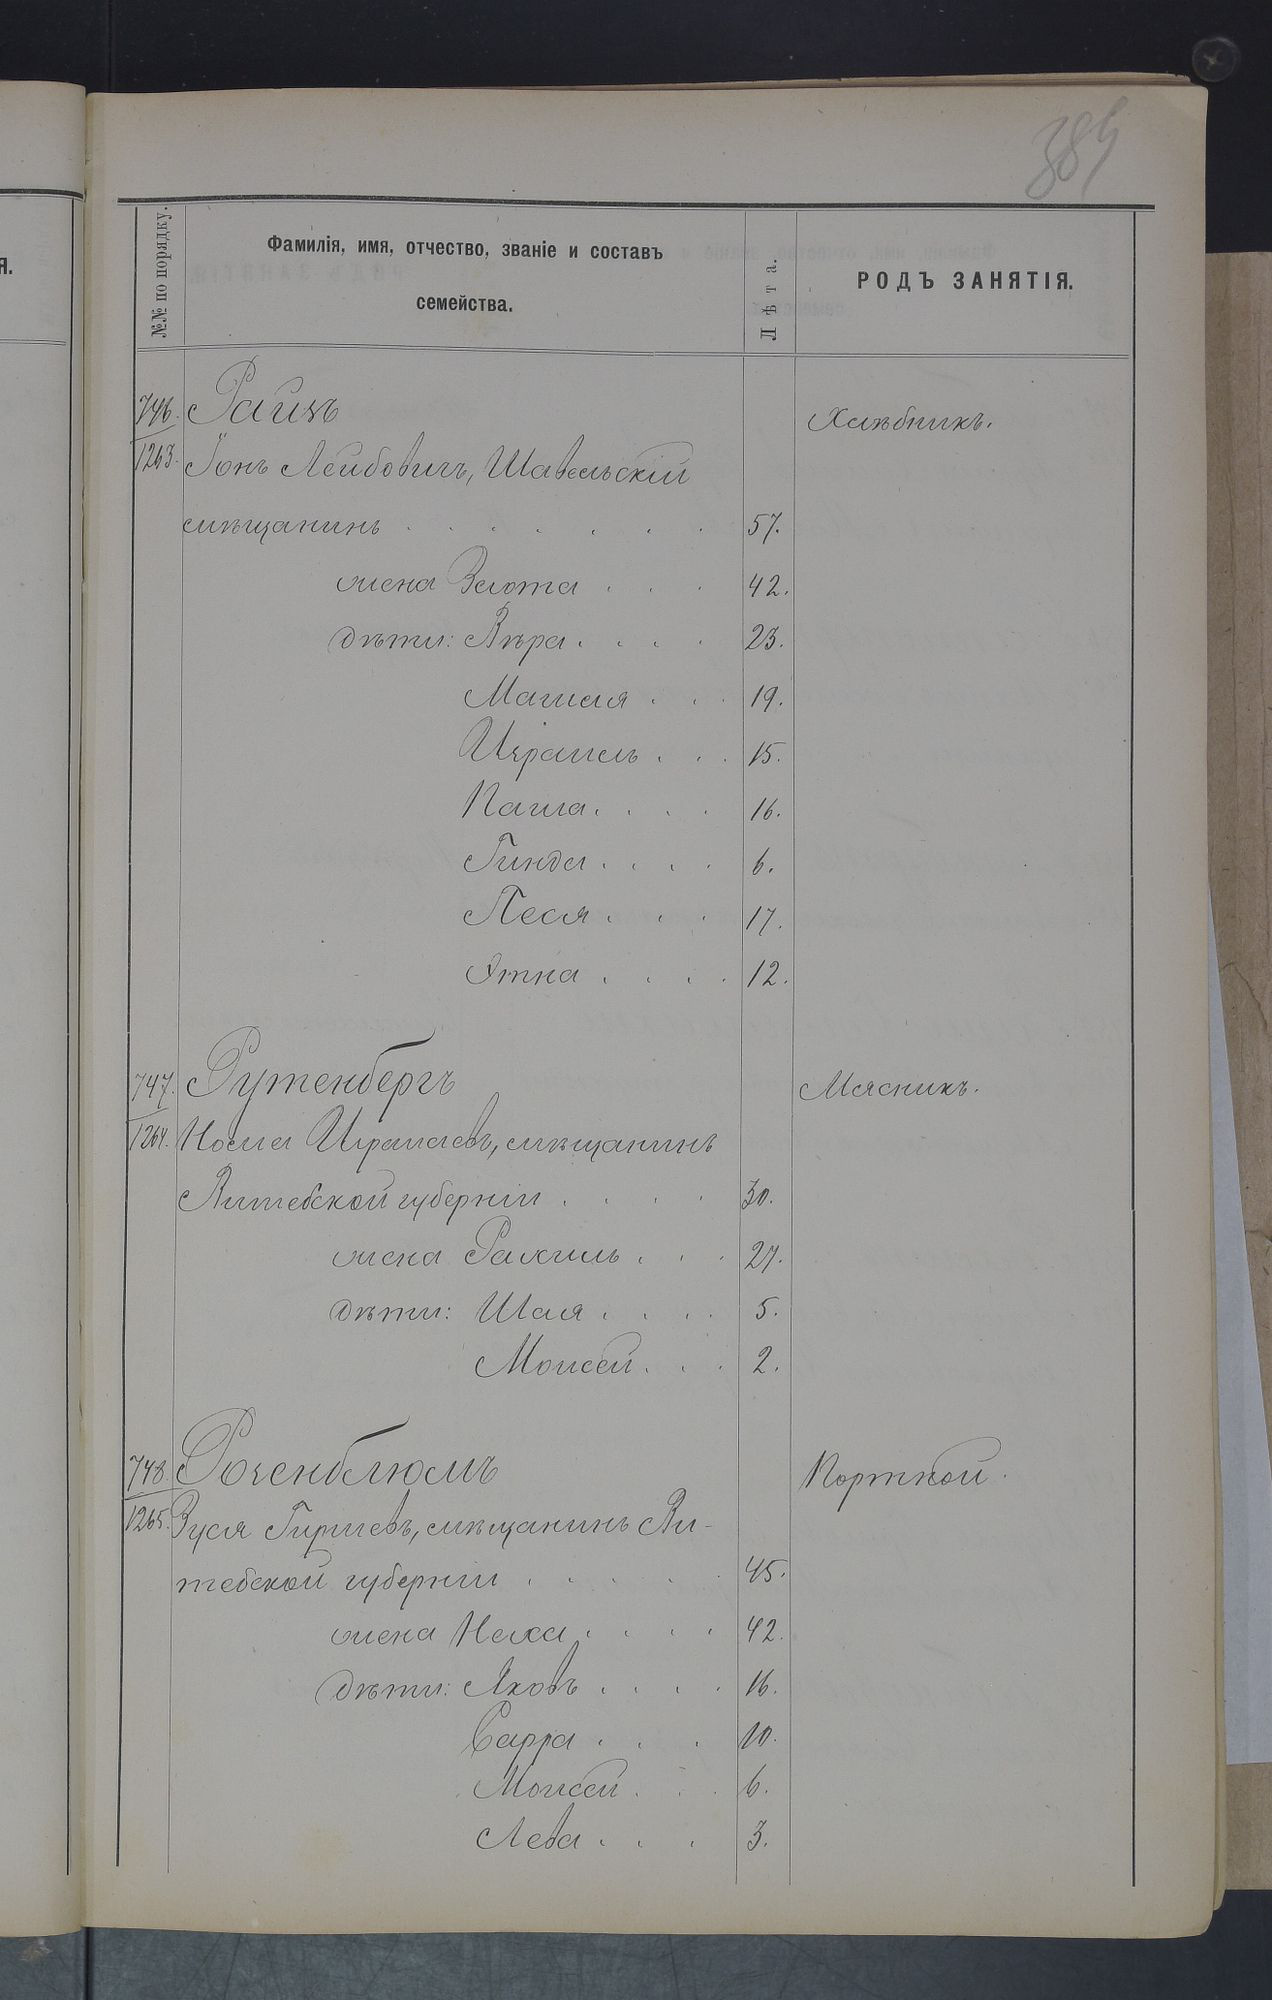 389
№№ по порядку.
Фамилія, имя, отчество, званіе и составъ
семейства.
Лѣта.
РОДЪ ЗАНЯТІЯ.
Я.
746. Райзъ Хлѣбникъ.
1263. Іонъ Лейбовичъ, Шавельскій
мѣщанинъ . . . . . . 57.
жена Злота . . . 42.
дѣти: Вѣра . . . . 23.
19.
Израиль . . . 15.
16.
Гинда . . . . 6.
Песя . . . 17.
Этка . . . . 12.
747. Рутенбергъ Мясникъ.
1264. Носка Израилевъ, мѣщанинъ
Витебской губерніи . . . . 30.
жена Рахиль . . . 27.
дѣти: Шая . . . . 5.
Моисей . . . 2.
748. Розенблюмъ Портной.
1265. Зуся Гиршевъ, мѣщанинъ Ви-
тебской губерніи . . . . . 45.
жена Неха . . . . 42.
дѣти: Яковъ . . . . 16.
Сарра . . . 10.
Моисей . . . 6.
Лева . . . 3.